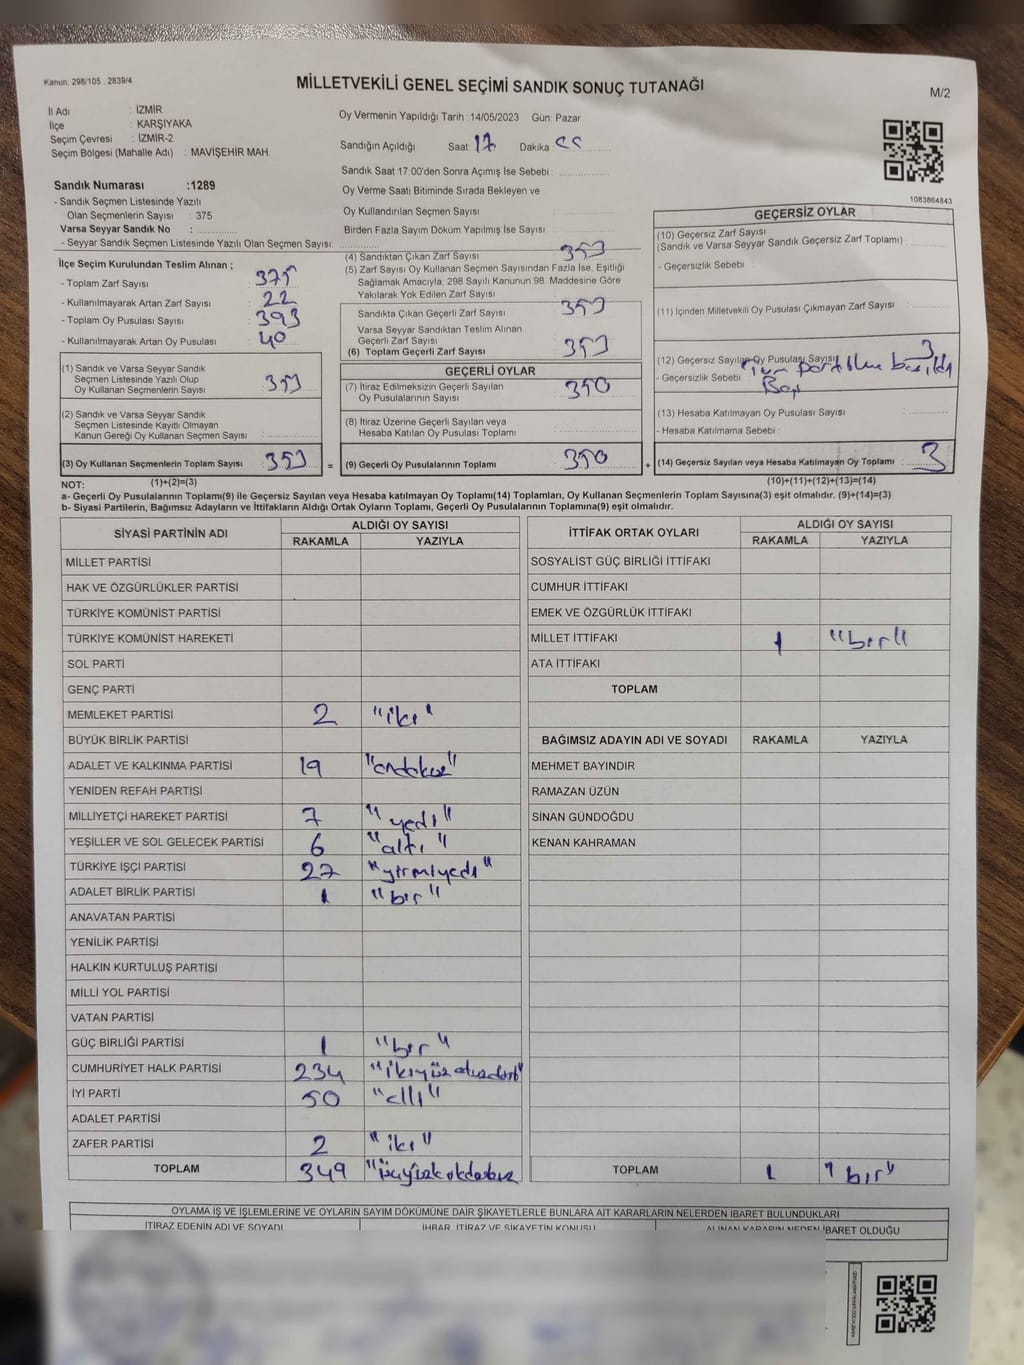 Kanun: 298/105 . 2839/4
MİLLETVEKİLİ GENEL SEÇİMİ SANDIK SONUÇ TUTANAĞI
M/2
İl Adı : İZMİR
İlçe : KARŞIYAKA
Seçim Çevresi : İZMİR-2
Seçim Bölgesi (Mahalle Adı) : MAVİŞEHİR MAH.
Sandık Numarası :1289
- Sandık Seçmen Listesinde Yazılı
Olan Seçmenlerin Sayısı : 375
Varsa Seyyar Sandık No :
- Seyyar Sandık Seçmen Listesinde Yazılı Olan Seçmen Sayısı:
Oy Vermenin Yapıldığı Tarih :14/05/2023 Gün: Pazar
Sandığın Açıldığı Saat: 17 Dakika
Sandık Saat 17:00'den Sonra Açımış İse Sebebi :
Oy Verme Saati Bitiminde Sırada Bekleyen ve
Oy Kullandırılan Seçmen Sayısı
Birden Fazla Sayım Döküm Yapılmış İse Sayısı
1083864843
İlçe Seçim Kurulundan Teslim Alınan ;
- Toplam Zarf Sayısı : 375
- Kullanılmayarak Artan Zarf Sayısı : 22
- Toplam Oy Pusulası Sayısı : 393
- Kullanılmayarak Artan Oy Pusulası : 40
(1) Sandık ve Varsa Seyyar Sandık
Seçmen Listesinde Yazılı Olup
Oy Kullanan Seçmenlerin Sayısı : 353
(2) Sandık ve Varsa Seyyar Sandık
Seçmen Listesinde Kayıtlı Olmayan
Kanun Gereği Oy Kullanan Seçmen Sayısı :
(3) Oy Kullanan Seçmenlerin Toplam Sayısı : 353
(1)+(2)=(3)
(4) Sandıktan Çıkan Zarf Sayısı : 353
(5) Zarf Sayısı Oy Kullanan Seçmen Sayısından Fazla İse, Eşitliği
Sağlamak Amacıyla; 298 Sayılı Kanunun 98. Maddesine Göre
Yakılarak Yok Edilen Zarf Sayısı
Sandıkta Çıkan Geçerli Zarf Sayısı : 353
Varsa Seyyar Sandıktan Teslim Alınan
Geçerli Zarf Sayısı
(6) Toplam Geçerli Zarf Sayısı : 353
GEÇERLİ OYLAR
(7) İtiraz Edilmeksizin Geçerli Sayılan
Oy Pusulalarının Sayısı : 350
(8) İtiraz Üzerine Geçerli Sayılan veya
Hesaba Katılan Oy Pusulası Toplamı :
= (9) Geçerli Oy Pusulalarının Toplamı : 350
GEÇERSİZ OYLAR
(10) Geçersiz Zarf Sayısı
(Sandık ve Varsa Seyyar Sandık Geçersiz Zarf Toplamı) :
- Geçersizlik Sebebi :
(11) İçinden Milletvekili Oy Pusulası Çıkmayan Zarf Sayısı :
(12) Geçersiz Sayılan Oy Pusulası Sayısı : 3
- Geçersizlik Sebebi : Tüm
(13) Hesaba Katılmayan Oy Pusulası Sayısı :
- Hesaba Katılmama Sebebi :
+ (14) Geçersiz Sayılan veya Hesaba Katılmayan Oy Toplamı : 3
(10)+(11)+(12)+(13)=(14)
NOT:
a- Geçerli Oy Pusulalarının Toplamı(9) ile Geçersiz Sayılan veya Hesaba katılmayan Oy Toplamı(14) Toplamları, Oy Kullanan Seçmenlerin Toplam Sayısına(3) eşit olmalıdır. (9)+(14)=(3)
b- Siyasi Partilerin, Bağımsız Adayların ve İttifakların Aldığı Ortak Oyların Toplamı, Geçerli Oy Pusulalarının Toplamına(9) eşit olmalıdır.
SİYASİ PARTİNİN ADI ALDIĞI OY SAYISI
RAKAMLA YAZIYLA
MİLLET PARTİSİ
HAK VE ÖZGÜRLÜKLER PARTİSİ
TÜRKİYE KOMÜNİST PARTİSİ
TÜRKİYE KOMÜNİST HAREKETİ
SOL PARTİ
GENÇ PARTİ
MEMLEKET PARTİSİ 2 "iki"
BÜYÜK BİRLİK PARTİSİ
ADALET VE KALKINMA PARTİSİ 19 "ondokuz"
YENİDEN REFAH PARTİSİ
MİLLİYETÇİ HAREKET PARTİSİ 7 "yedi"
YEŞİLLER VE SOL GELECEK PARTİSİ 6 "altı"
TÜRKİYE İŞÇİ PARTİSİ 27 "yirmiyedi"
ADALET BİRLİK PARTİSİ 1 "bir"
ANAVATAN PARTİSİ
YENİLİK PARTİSİ
HALKIN KURTULUŞ PARTİSİ
MİLLİ YOL PARTİSİ
VATAN PARTİSİ
GÜÇ BİRLİĞİ PARTİSİ 1 "bir"
CUMHURİYET HALK PARTİSİ 234 "ikiyüzotuzdört"
İYİ PARTİ 50 "elli"
ADALET PARTİSİ
ZAFER PARTİSİ 2 "iki"
TOPLAM 349
İTTİFAK ORTAK OYLARI ALDIĞI OY SAYISI
RAKAMLA YAZIYLA
SOSYALİST GÜÇ BİRLİĞİ İTTİFAKI
CUMHUR İTTİFAKI
EMEK VE ÖZGÜRLÜK İTTİFAKI
MİLLET İTTİFAKI 1 "bir"
ATA İTTİFAKI
TOPLAM
BAĞIMSIZ ADAYIN ADI VE SOYADI RAKAMLA YAZIYLA
MEHMET BAYINDIR
RAMAZAN ÜZÜN
SİNAN GÜNDOĞDU
KENAN KAHRAMAN
TOPLAM 1 "bir"
OYLAMA İŞ VE İŞLEMLERİNE VE OYLARIN SAYIM DÖKÜMÜNE DAİR ŞİKAYETLERLE BUNLARA AİT KARARLARIN NELERDEN İBARET BULUNDUKLARI
İTİRAZ EDENİN ADI VE SOYADI İHBAR, İTİRAZ VE ŞİKAYETİN KONUSU ALINAN KARARIN NEDEN İBARET OLDUĞU